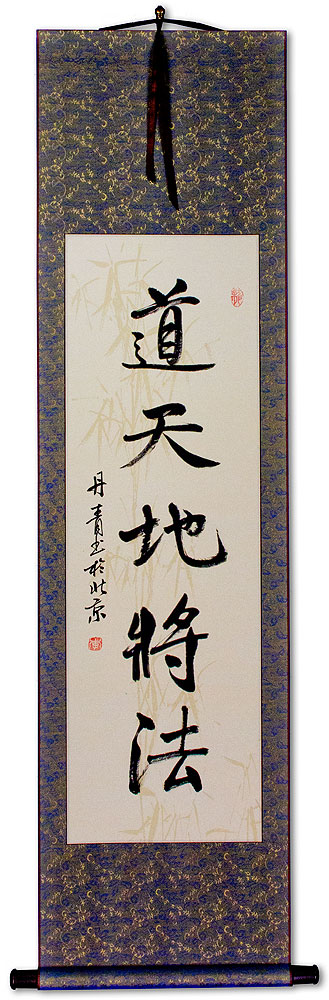 道天地將法
丹青书於北京